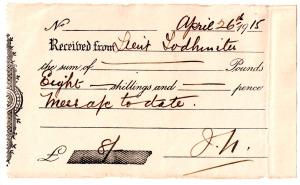 No April 26th 1915
Received from Lieut Todhunter
the sum of Pounds
Eight shillings and pence
Mess a/c to date.
£ 8/